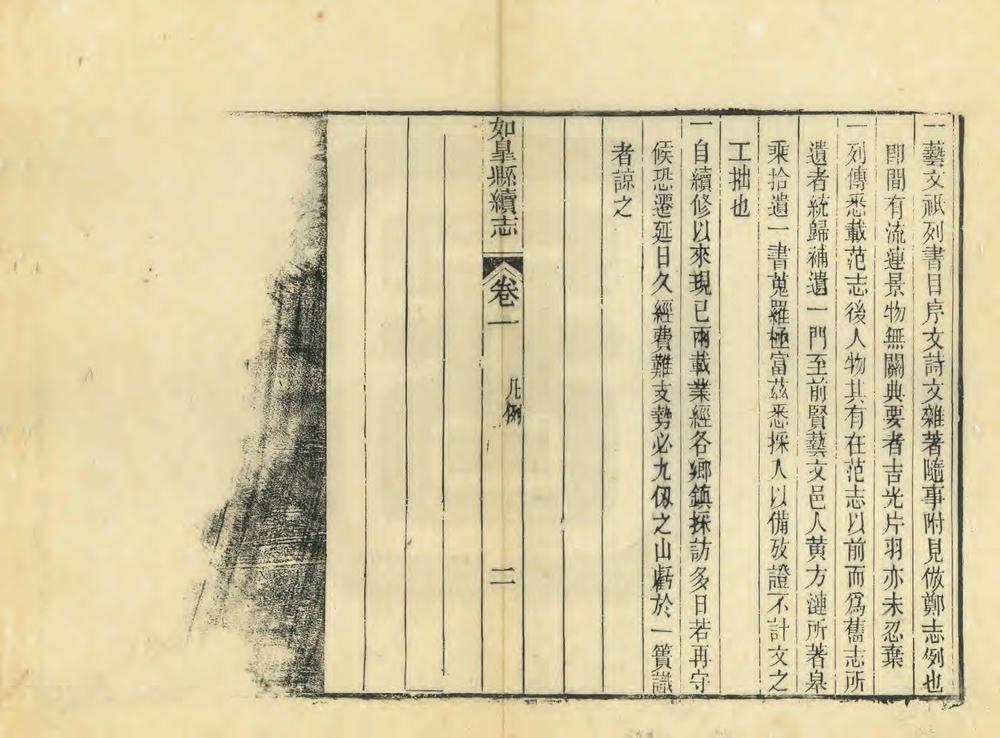 一藝文祇列書目序文詩文雜著隨事附見倣鄭志例也
卽間有流連景物無關典要者吉光片羽亦未忍棄
一列傳悉載范志後人物其有在范志以前而爲舊志所
遺者統歸補遺一門至前賢藝文邑人黄方漣所著皋
乘拾遺一書蒐羅極富茲悉採入以備攷證不計文之
工拙也
一自續修以來現已兩載業經各鄉鎮採訪多日若再守
候恐遷延日久經費難支勢必九仭之山虧於一簣識
者諒之
如皋縣續志
卷一
凡例
二